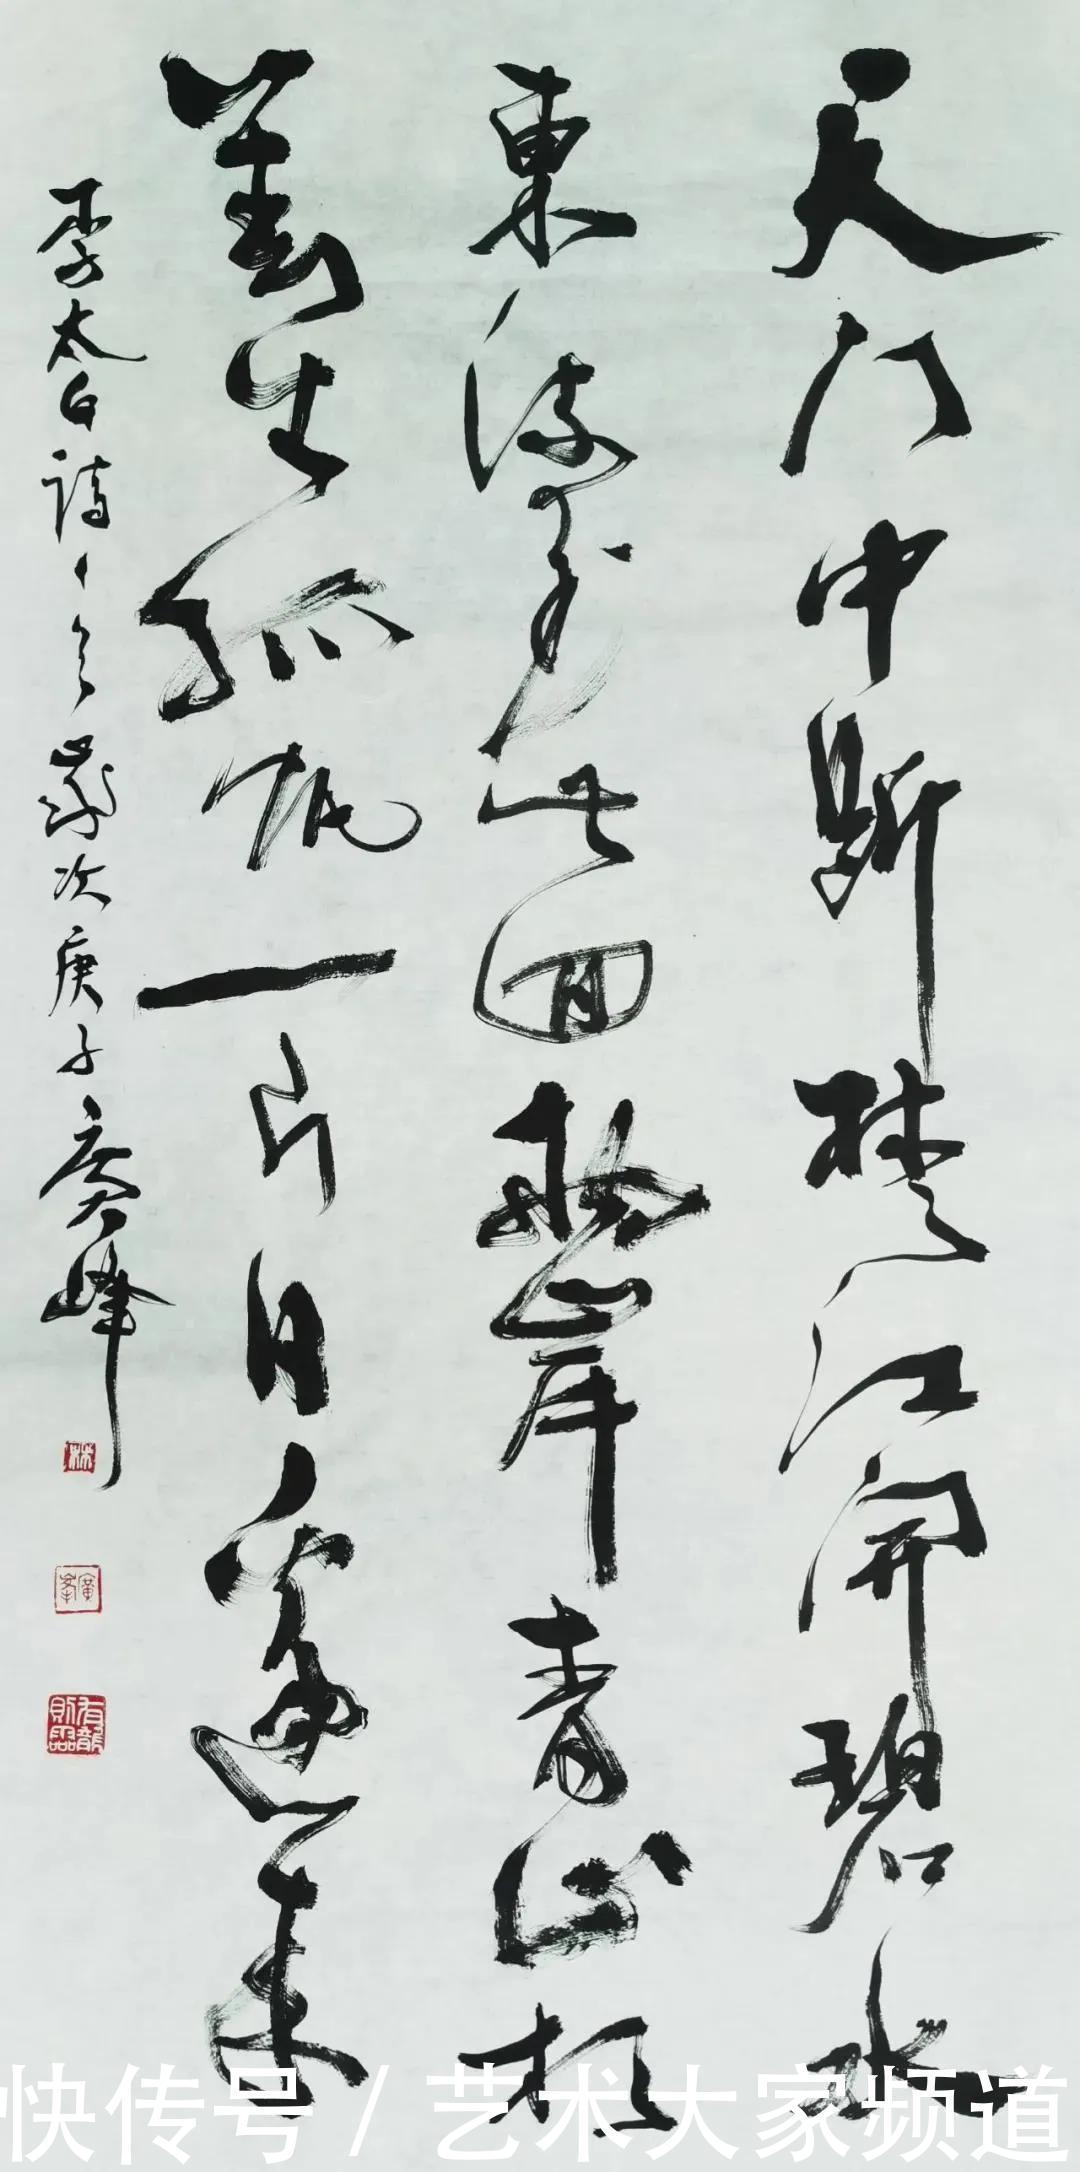 天門中斷楚江開碧水
東流至此回兩岸青山相
對出孤帆一片日邊來
李太白詩一首歲次庚子廣峰
林
快传号 / 艺术大家频道